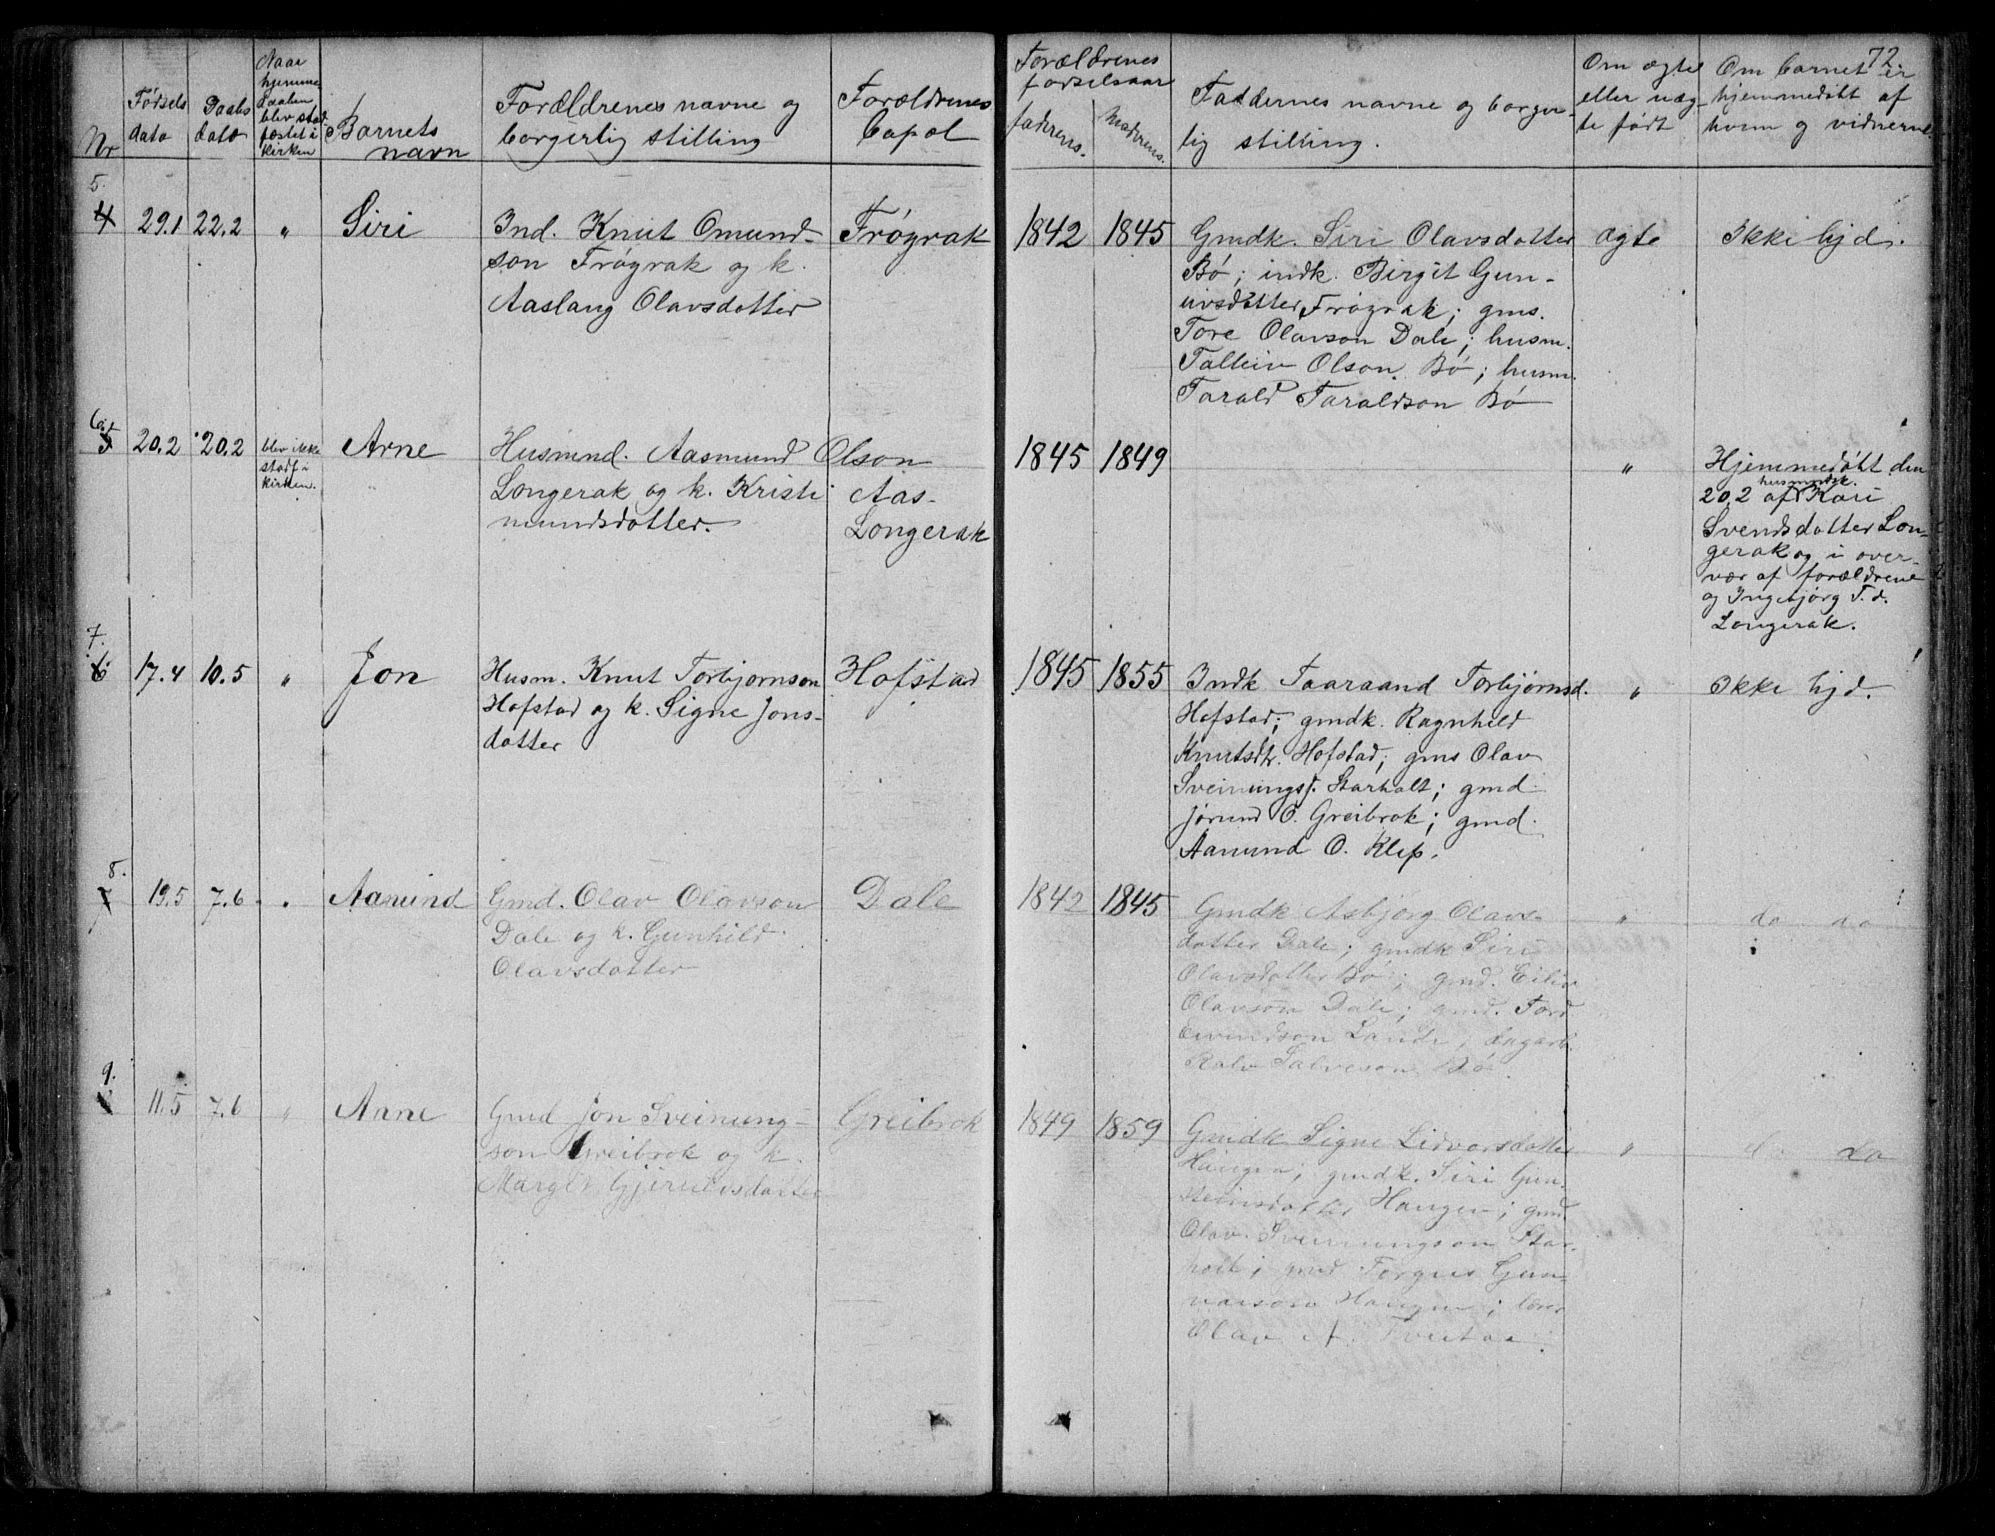 72
Nr
Fødsels
dato
Daabs
dato
Naar
hjemme
daaben
blev stad
fæstet i
kirken
Barnets
navn
Forældrenes navne og
borgerlig stilling
Forældrenes
bopæl
Forældrenes
fødselsaar
faderens.
moderens.
Faddernes navne og borger-
lig stilling.
Om ægte
eller uæg-
te født
Om barnet er
hjemmedøbt af
hvem og vidnerne
5.
4 29.1 22.2 " Siri
Ind. Knut Omund-
son Frøgrak og k.
Aaslaug Olavsdotter
Frøgrak
1842 1845
Gmdk. Siri Olavsdotter
Bø; indk. Birgit Gun-
uvsdotter Frøgrak; gms.
Tore Olavson Dale; husm.
Talleiv Olson Bø; husm.
Tarald Taraldson Bø
ægte
Ikke hjd.
6.
5 20.2 20.2
blev ikke
stadf i
kirken.
Arne
Husmnd. Aasmund Olson
Longerak og k. Kristi
mundsdotter.
Aas-
Longerak
1845 1849
"
Hjemmedøbt den
husmndk.
20.2 af Kari
Svendsdotter Lon-
gerak og i over-
vær af forældrene
og Ingebjørg T. d.
Longerak.
7.
6 17.4 10.5 " Jon
Husm. Knut Torbjørnson
Hofstad og k. Signe Jons-
dotter
Hofstad
1845 1855
Indk Taaraand Torbjørnsd.
Hofstad; gmdk. Ragnhild
Knutsdtr. Hofstad; gms Olav
Sveinungs. Starholt; gmd
Jørund O. Greibrok; gmd.
Aanund O. Klep.
"
Ikke hjd.
8.
7 19.5 7.6 " Aanund
Gmd. Olav Olavson
Dale og k. Gunhild
Olavsdotter
Dale
1842 1845
Gmdk Asbjørg Olavs-
dotter Dale; gmdk Siri
Olavsdotter Bø; gmd. Eiliv
Olavson Dale; gmd. Tord
Eivindson Lande; dagarb.
Rolv Salveson Bø
"
do do
9.
11.5 7.6 " Anne
Gmd Jon Sveinung-
son Greibrok og k.
Margit Gjerulvsdotter
Greibrok
1849 1859
Gmdk Signe Lidvorsdotter
Haugen; gmdk. Siri Gun-
steinsdotter Haugen; gmd.
Olav Sveinungson Star-
holt; gmd Torgus Gun-
narson Haugen; lærer
Olav A. Tveitaa
"
do do